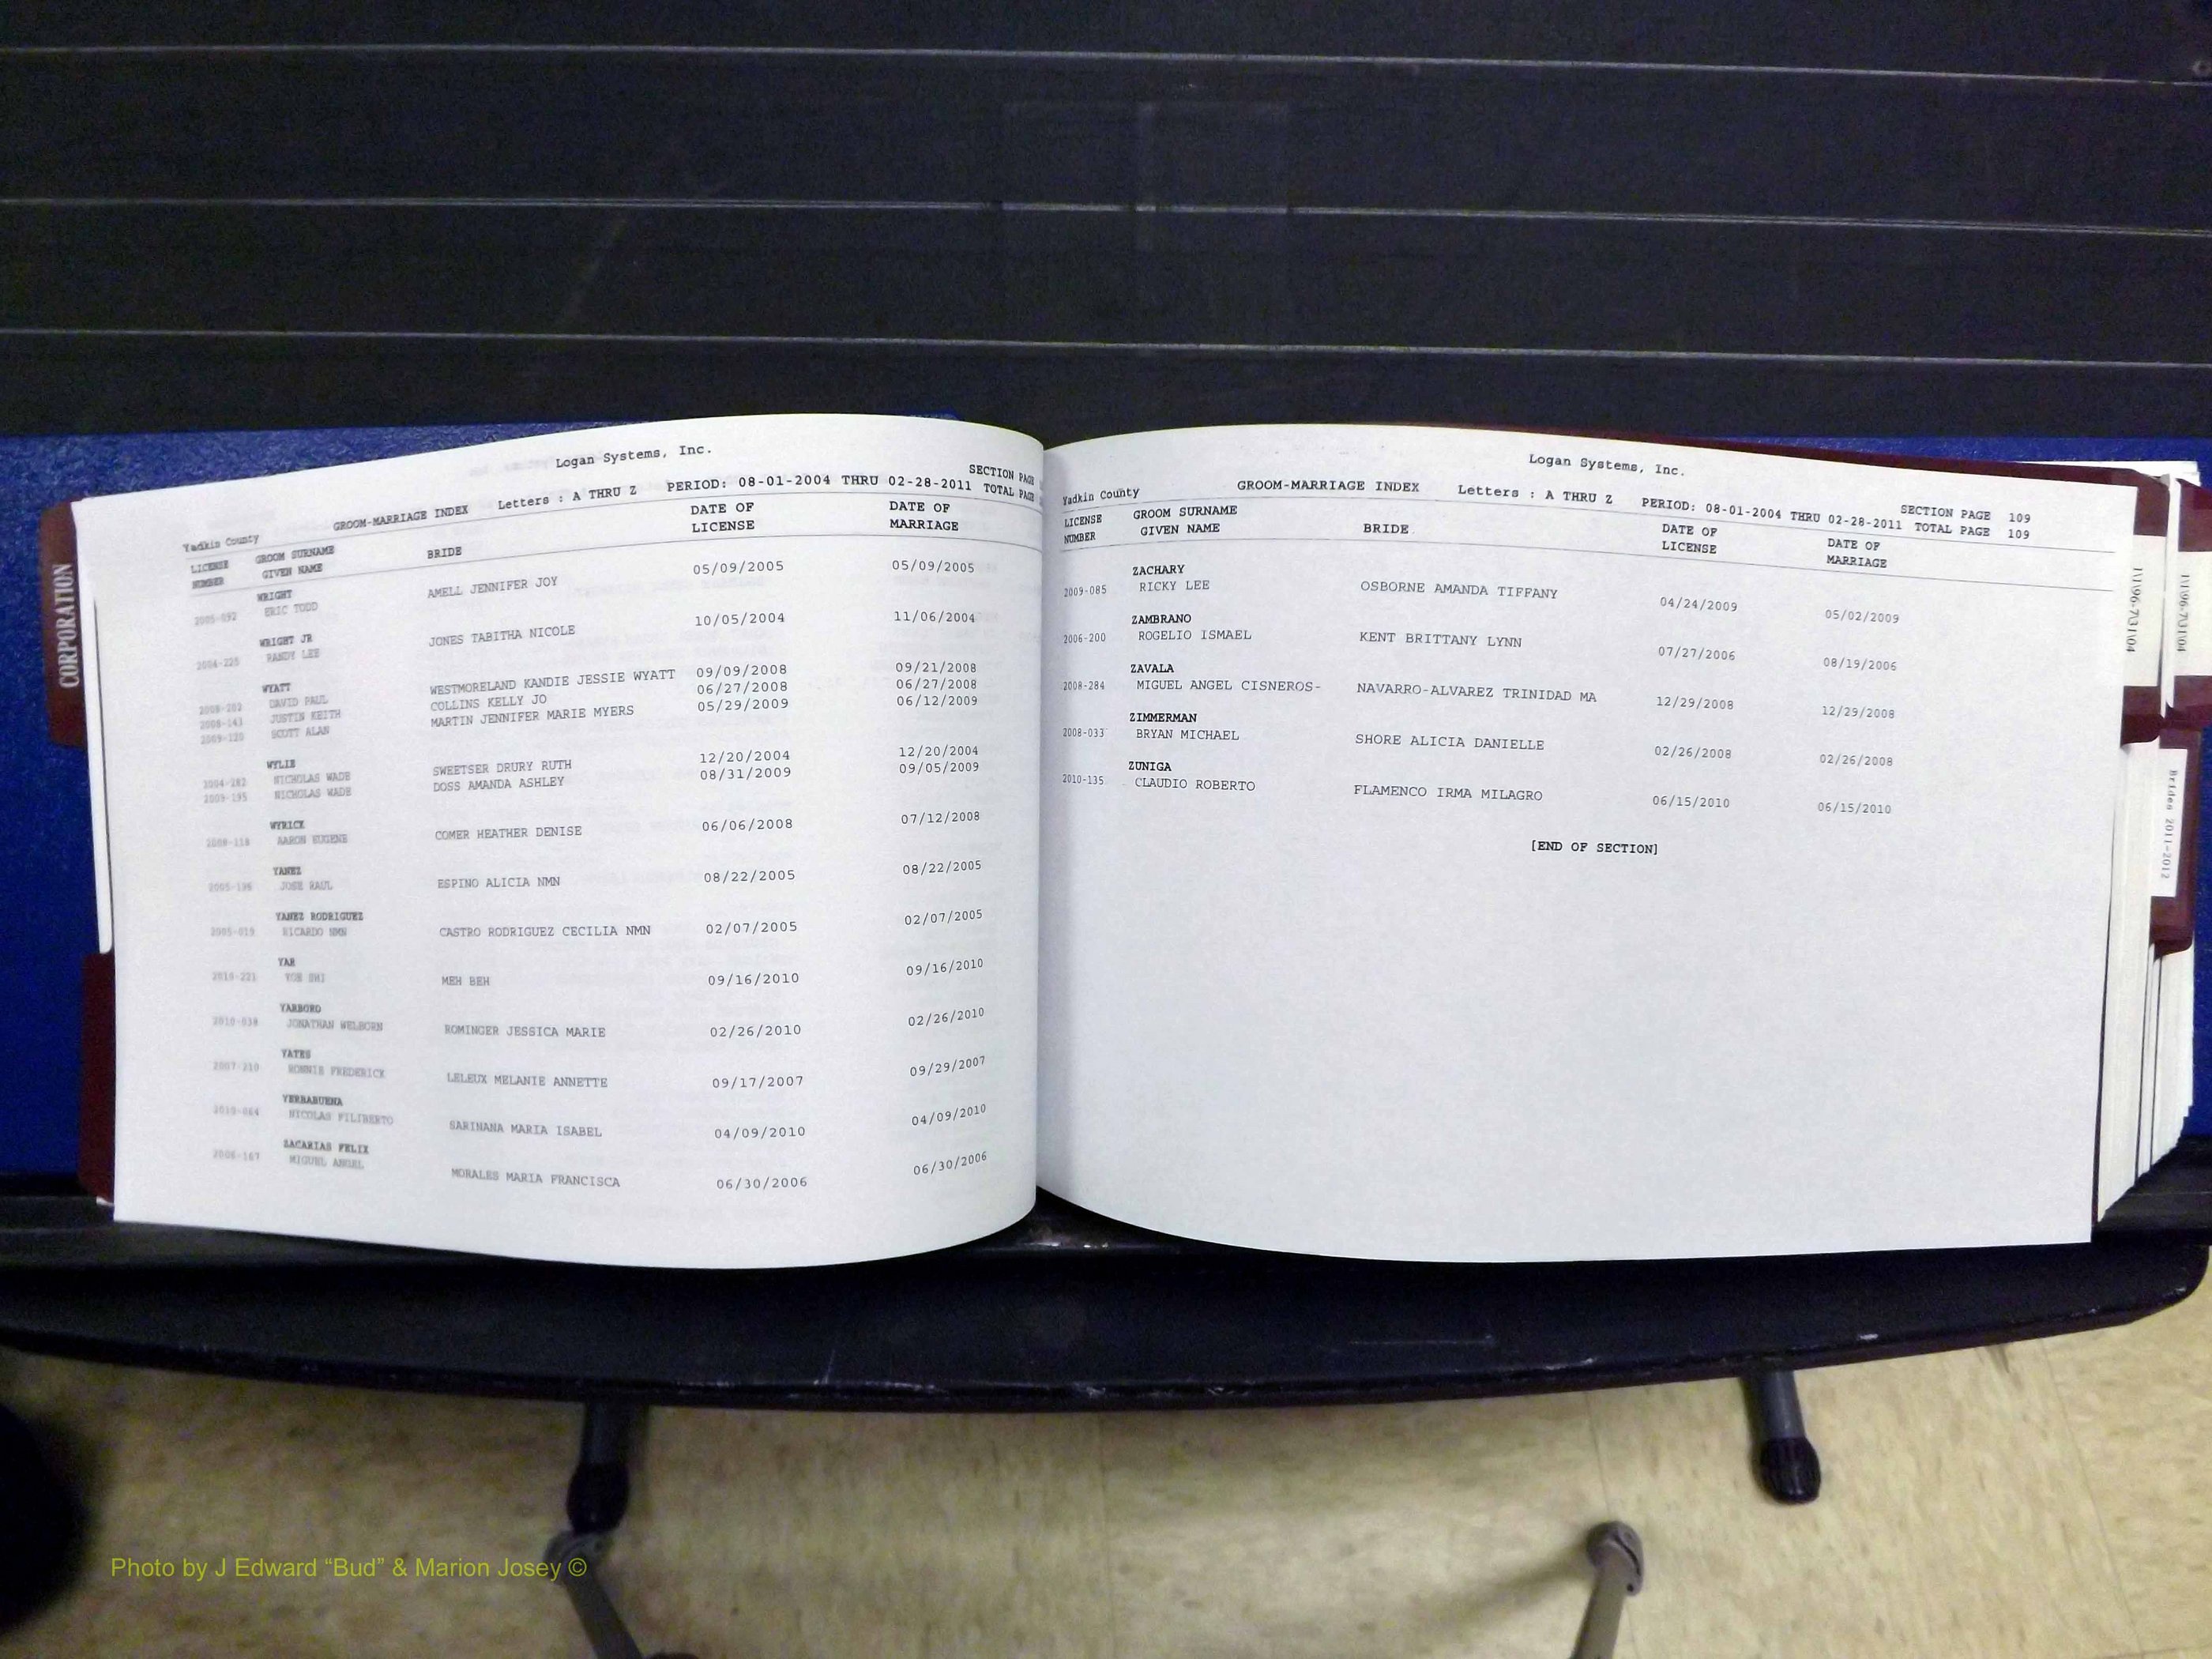 CORPORATION
Logan Systems, Inc.
SECTION PAGE
Yadkin County GROOM-MARRIAGE INDEX Letters : A THRU Z PERIOD: 08-01-2004 THRU 02-28-2011 TOTAL PAGE
LICENSE GROOM SURNAME DATE OF DATE OF
NUMBER GIVEN NAME BRIDE LICENSE MARRIAGE
WRIGHT
2005-092 ERIC TODD AMELL JENNIFER JOY 05/09/2005 05/09/2005
WRIGHT JR
2004-225 RANDY LEE JONES TABITHA NICOLE 10/05/2004 11/06/2004
WYATT
2008-202 DAVID PAUL WESTMORELAND KANDIE JESSIE WYATT 09/09/2008 09/21/2008
2008-143 JUSTIN KEITH COLLINS KELLY JO 06/27/2008 06/27/2008
2009-120 SCOTT ALAN MARTIN JENNIFER MARIE MYERS 05/29/2009 06/12/2009
WYLIE
2004-282 NICHOLAS WADE SWEETSER DRURY RUTH 12/20/2004 12/20/2004
2009-195 NICHOLAS WADE DOSS AMANDA ASHLEY 08/31/2009 09/05/2009
WYRICK
2008-118 AARON EUGENE COMER HEATHER DENISE 06/06/2008 07/12/2008
YANEZ
2005-196 JOSE RAUL ESPINO ALICIA NMN 08/22/2005 08/22/2005
YANEZ RODRIGUEZ
2005-019 RICARDO NMN CASTRO RODRIGUEZ CECILIA NMN 02/07/2005 02/07/2005
YAR
2010-221 MEH BEH 09/16/2010 09/16/2010
YARBORO
2010-038 JONATHAN WELBORN ROMINGER JESSICA MARIE 02/26/2010 02/26/2010
YATES
2007-210 RONNIE FREDERICK LELEUX MELANIE ANNETTE 09/17/2007 09/29/2007
YERBABUENA
2010-064 NICOLAS FILIBERTO SARINANA MARIA ISABEL 04/09/2010 04/09/2010
ZACARIAS FELIX
2006-167 MIGUEL ANGEL MORALES MARIA FRANCISCA 06/30/2006 06/30/2006
Logan Systems, Inc.
SECTION PAGE 109
Yadkin County GROOM-MARRIAGE INDEX Letters : A THRU Z PERIOD: 08-01-2004 THRU 02-28-2011 TOTAL PAGE 109
LICENSE GROOM SURNAME DATE OF DATE OF
NUMBER GIVEN NAME BRIDE LICENSE MARRIAGE
ZACHARY
2009-085 RICKY LEE OSBORNE AMANDA TIFFANY 04/24/2009 05/02/2009
ZAMBRANO
2006-200 ROGELIO ISMAEL KENT BRITTANY LYNN 07/27/2006 08/19/2006
ZAVALA
2008-284 MIGUEL ANGEL CISNEROS- NAVARRO-ALVAREZ TRINIDAD MA 12/29/2008 12/29/2008
ZIMMERMAN
2008-033 BRYAN MICHAEL SHORE ALICIA DANIELLE 02/26/2008 02/26/2008
ZUNIGA
2010-135 CLAUDIO ROBERTO FLAMENCO IRMA MILAGRO 06/15/2010 06/15/2010
[END OF SECTION]
1\1\96-7\31\04
1\1\96-7\31\04
Brides 2011-2012
Photo by J Edward “Bud” & Marion Josey ©